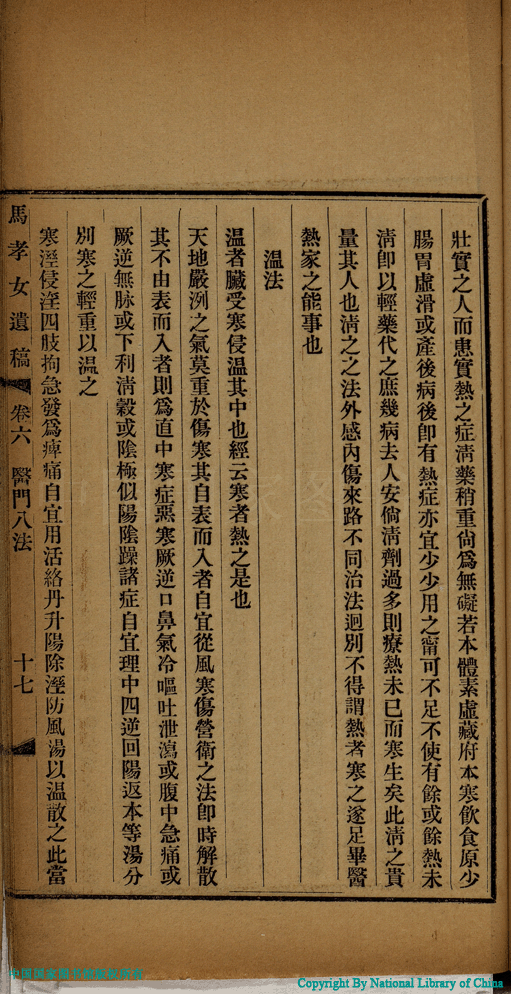 壯實之人而患實熱之症淸藥稍重尙爲無礙若本體素虛藏府本寒飮食原少
腸胃虛滑或產後病後卽有熱症亦宜少少用之甯可不足不使有餘或餘熱未
淸卽以輕藥代之庶幾病去人安倘淸劑過多則療熱未已而寒生矣此淸之貴
量其人也淸之之法外感內傷來路不同治法迥別不得謂熱者寒之遂足畢醫
熱家之能事也
温法
温者臟受寒侵温其中也經云寒者熱之是也
天地嚴冽之氣莫重於傷寒其自表而入者自宜從風寒傷營衛之法卽時解散
其不由表而入者則爲直中寒症惡寒厥逆口鼻氣冷嘔吐泄瀉或腹中急痛或
厥逆無脉或下利淸穀或陰極似陽陰躁諸症自宜理中四逆回陽返本等湯分
別寒之輕重以温之
寒溼侵淫四肢拘急發爲痺痛自宜用活絡丹升陽除溼防風湯以温散之此當
馬孝女遺稿 卷六 醫門八法 十七
中国国家图书馆版权所有
Copyright By National Library of China